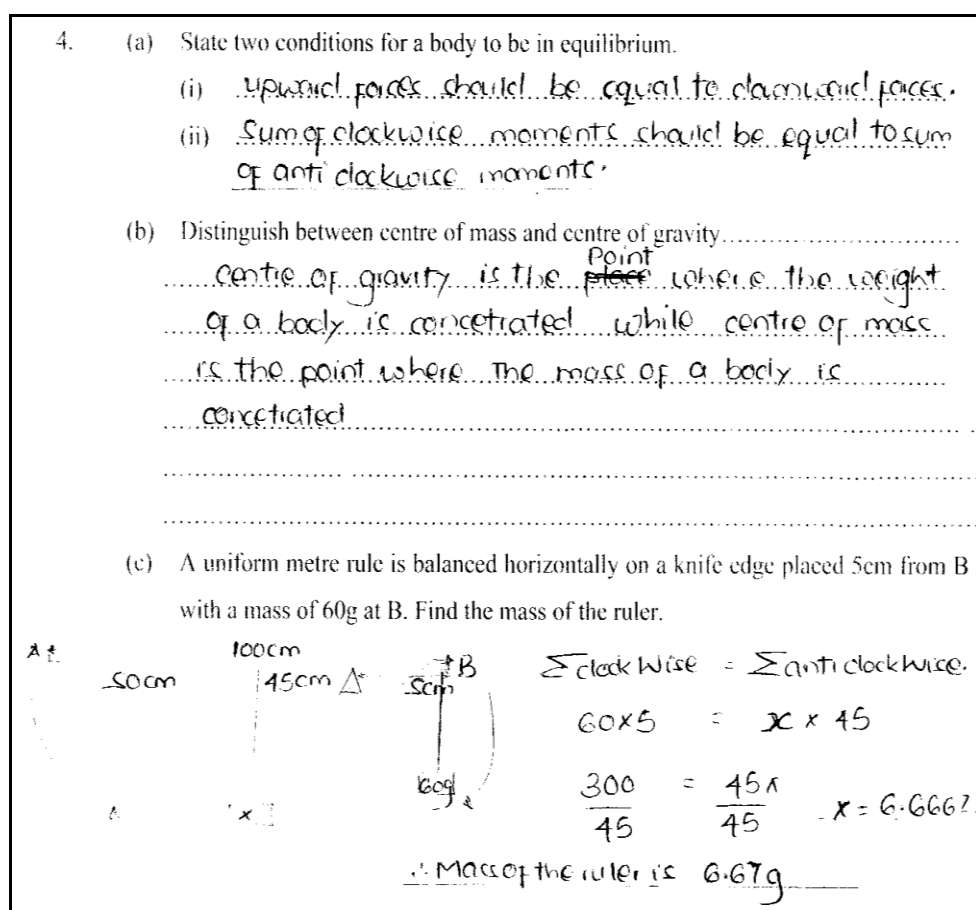 4. (a) State two conditions for a body to be in equilibrium.
(i) upward forces should be equal to downward forces.
(ii) Sum of clockwise moments should be equal to sum
of anti clockwise moments.
(b) Distinguish between centre of mass and centre of gravity
Point
centre of gravity is the place where the weight
of a body is concetrated while centre of mass
is the point where The mass of a body is
concetrated
(c) A uniform metre rule is balanced horizontally on a knife edge placed 5cm from B
with a mass of 60g at B. Find the mass of the ruler.
A 100cm B Σclock wise = Σanti clockwise.
50cm 45cm 5cm
60x5 = x x 45
60g 300 = 45x
45 45 x = 6.666
x
∴ Mass of the ruler is 6.67g